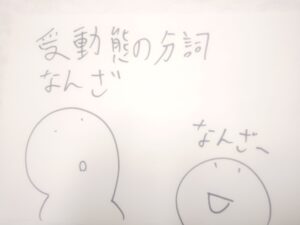 受動態の分詞
なんざ
なんざー